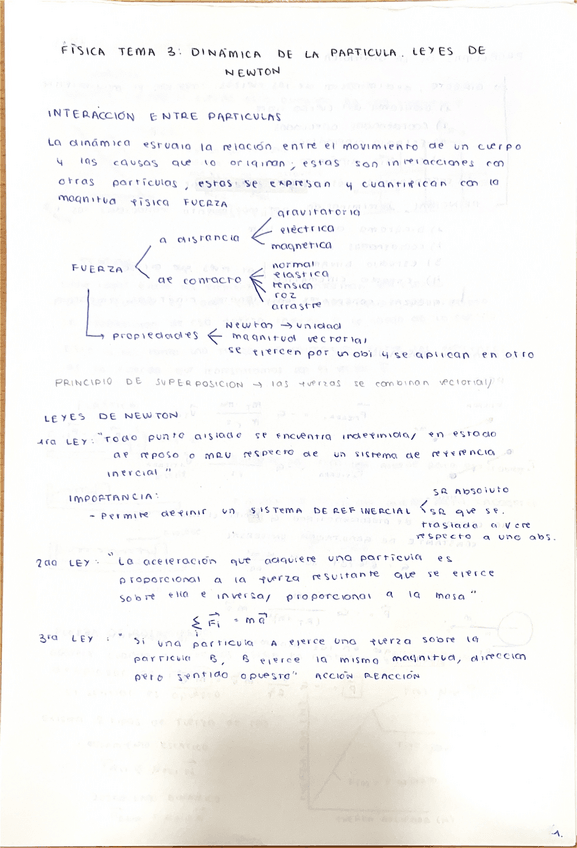 FÍSICA TEMA 3: DINÁMICA DE LA PARTICULA. LEYES DE
NEWTON
INTERACCIÓN ENTRE PARTICULAS
La dinámica estudia la relación entre el movimiento de un cuerpo
y las causas que lo originan; estas son interacciones con
otras partículas, estas se expresan y cuantifican con la
magnitud física FUERZA
FUERZA
a distancia
gravitatoria
eléctrica
magnética
de contacto
normal
elástica
tensión
roz
arrastre
propiedades
Newton → unidad
magnitud vectorial
se ejercen por un obj y se aplican en otro
PRINCIPIO DE SUPERPOSICIÓN → las fuerzas se combinan vectorial/
LEYES DE NEWTON
1ra LEY: "Todo punto aislado se encuentra indefinida/ en estado
de reposo o MRU respecto de un sistema de referencia
inercial"
IMPORTANCIA:
- Permite definir un SISTEMA DE REF INERCIAL
SR ABSOLUTO
SR que se
traslada a v cte
respecto a uno abs.
2da LEY: "La aceleración que adquiere una partícula es
proporcional a la fuerza resultante que se ejerce
sobre ella e inversa/ proporcional a la masa"
Σ F⃗i = ma⃗
i
3ra LEY: "Si una partícula A ejerce una fuerza sobre la
partícula B, B ejerce la misma magnitud, dirección
pero sentido opuesto" ACCIÓN REACCIÓN
1.